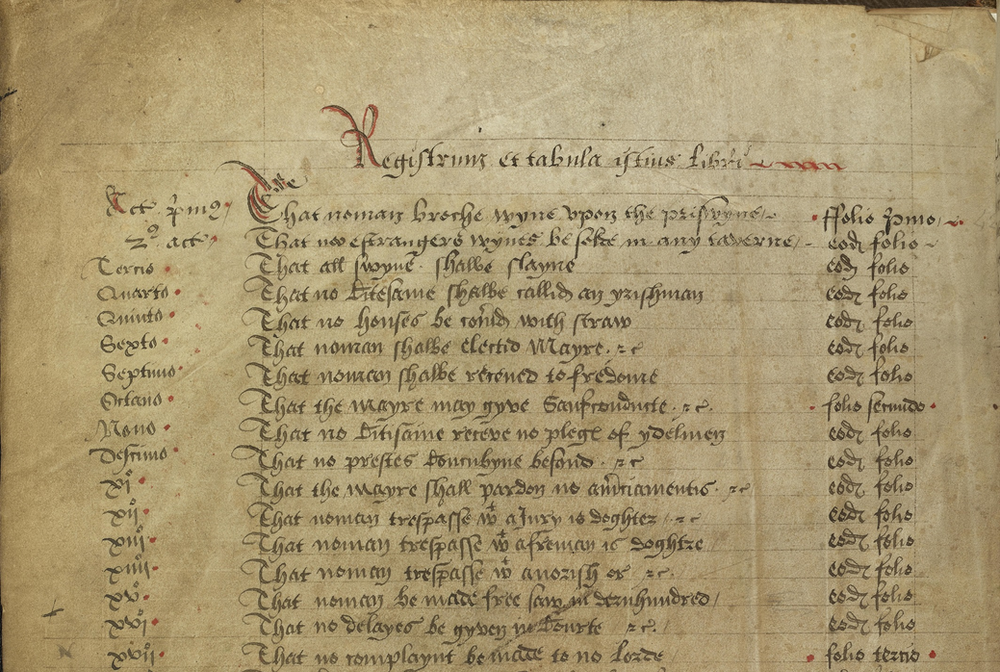 Registrum et tabula istius libri
Act p͛mo That noman broche wyne vpon the prisewyne ffolio p͛mo
2o act That noo estrangers wynes be solde in any taverne eodɜ folio
Tercio That all swyne shalbe slayne eodɜ folio
Quarto That no Citesaine shalbe callid an yrishman eodɜ folio
Quinto That no houses be cou͛id with straw eodɜ folio
Sexto That noman shalbe electid Mayre ⁊c eodɜ folio
Septimo That noman shalbe receued to fredome eodɜ folio
Octauo That the Mayre may gyve Saufconducte ⁊c folio secundo
Nono That no Citisaine receve no plegɜ of ydelmen eodɜ folio
Descimo That no prestes Concubyne be ⁊c eodɜ folio
xio That the Mayre shall pardon no am͛ciamentis ⁊c eodɜ folio
xijo That noman trespasse wt a Jury is doghter ⁊c eodɜ folio
xiijo That noman trespasse wt a freman is doghtre eodɜ folio
xiiijo That noman trespasse wt a norish or ⁊c eodɜ folio
xvo That noman be made free sav in dernhundred eodɜ folio
xvio That no delayes be gyven in Courte ⁊c eodɜ folio
xvijo That no complaynt be made to no lorde folio tercio